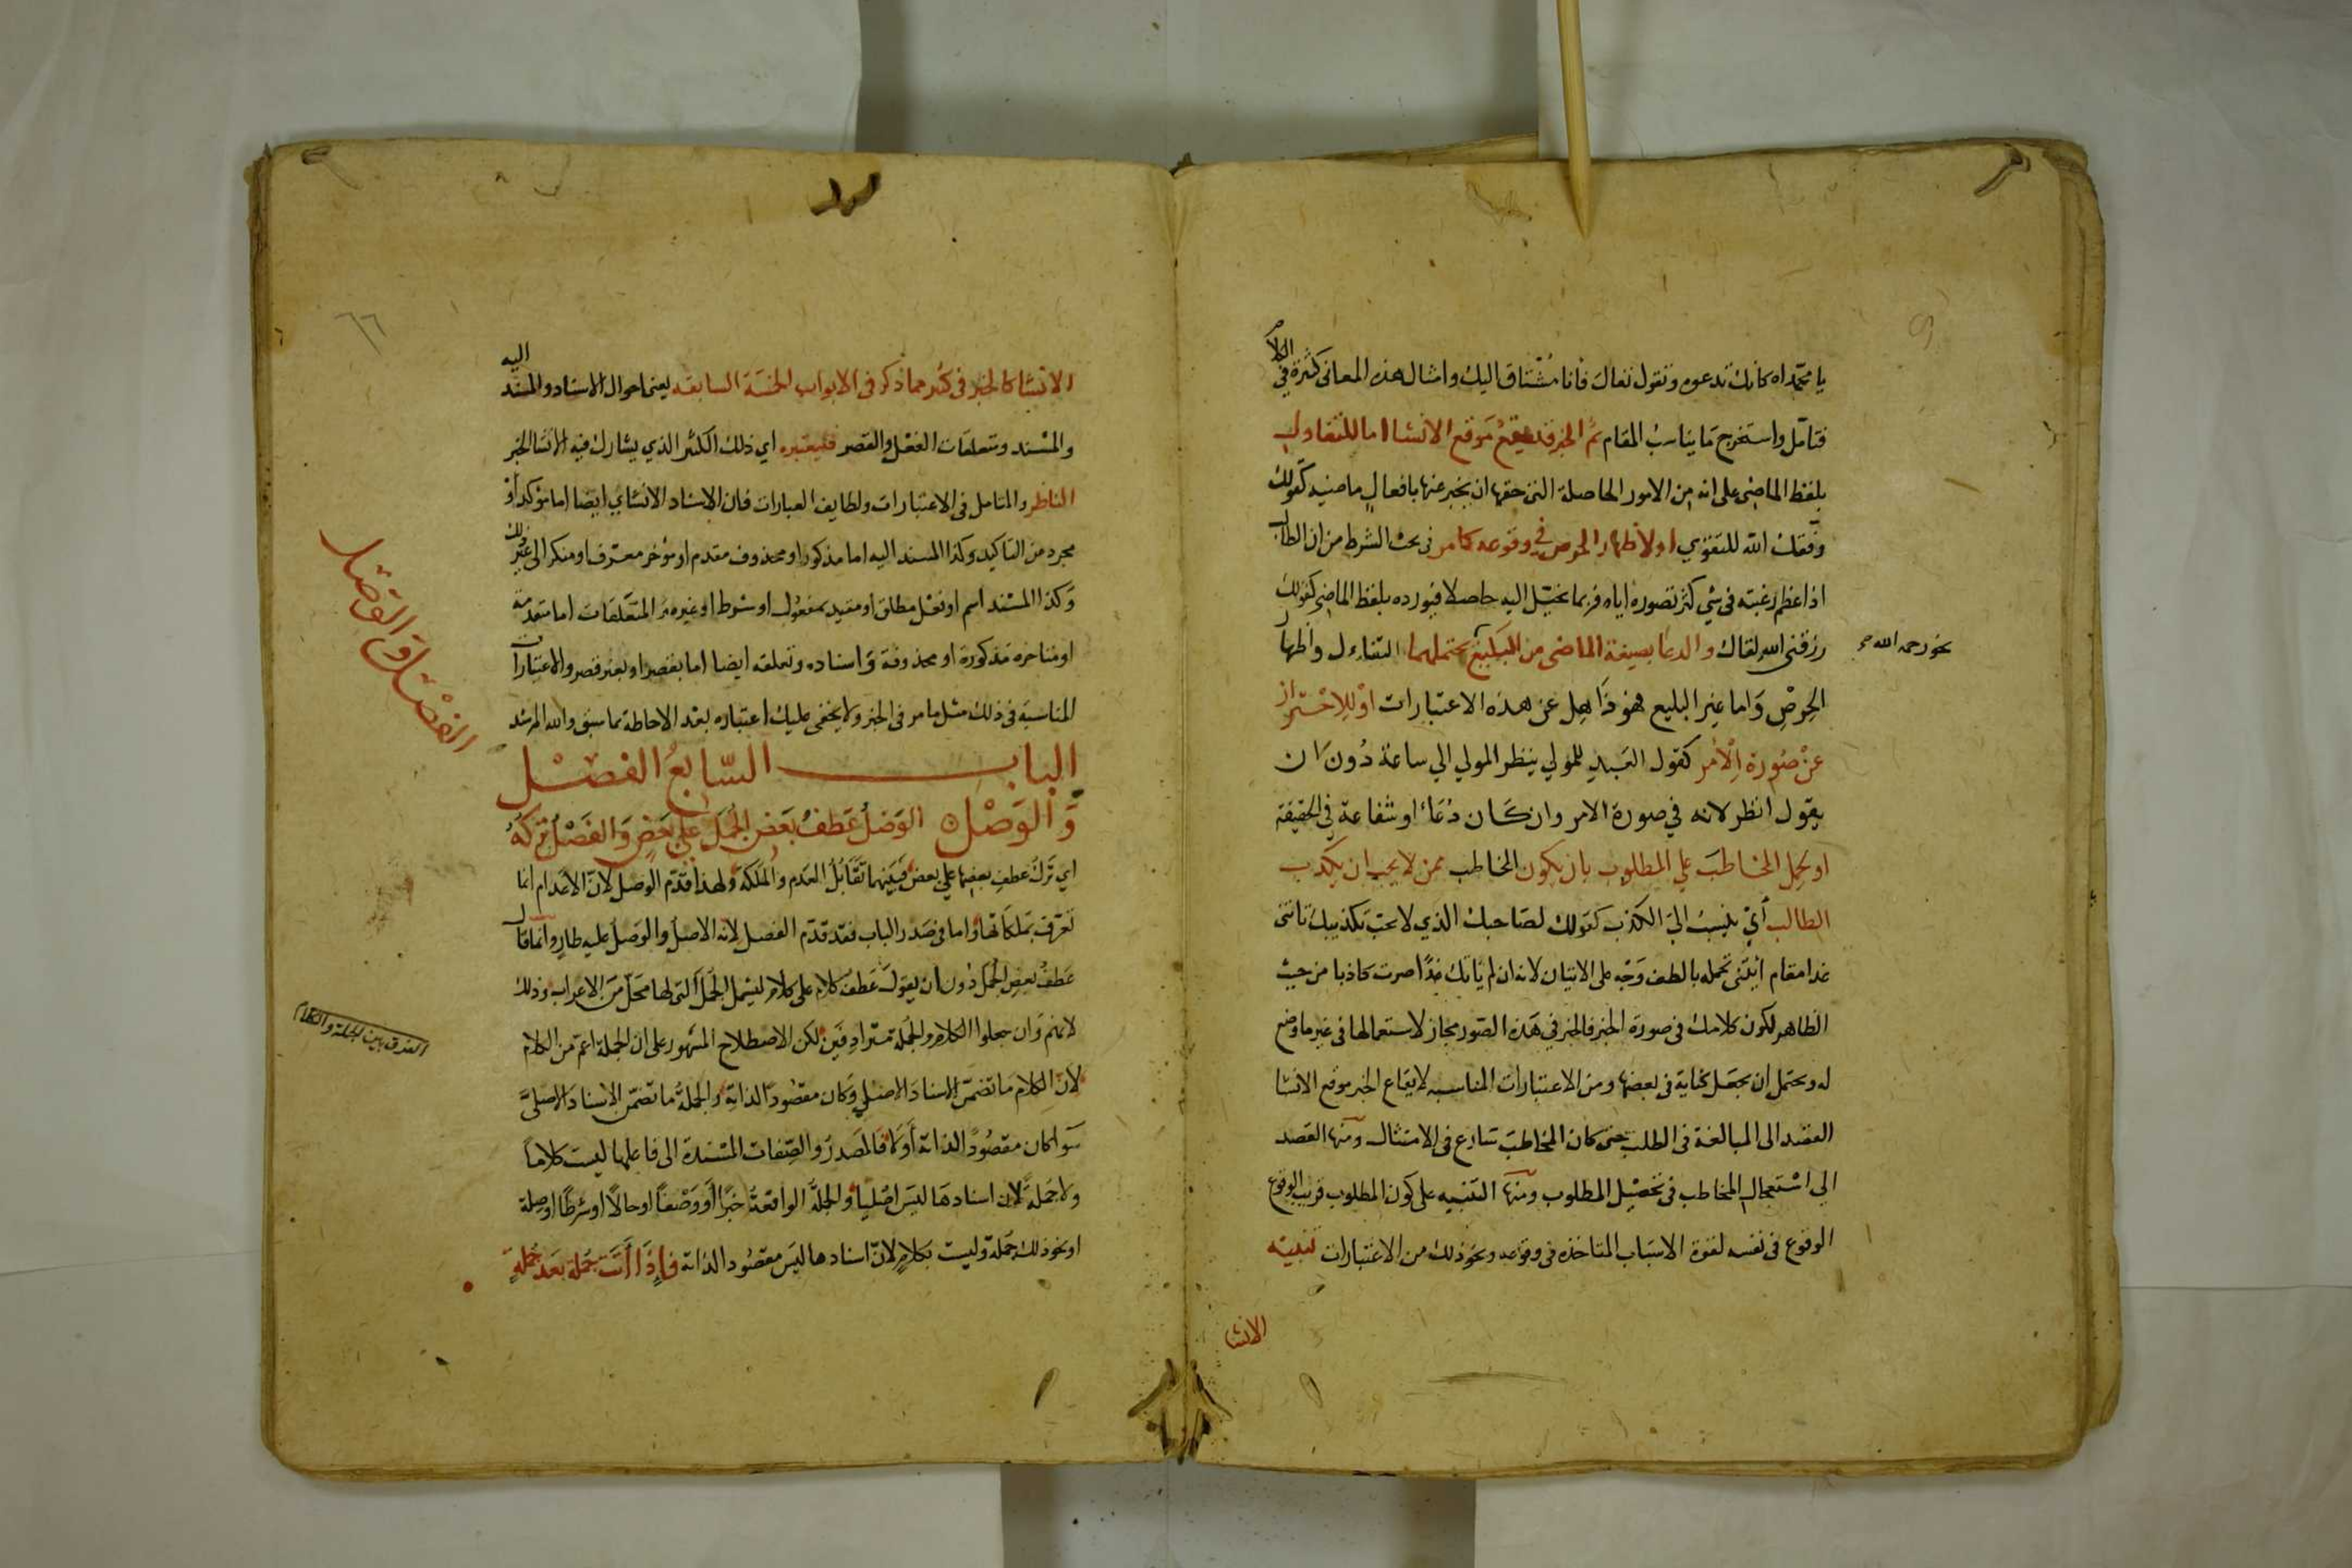 يا محمداه كانك تدعوه وتقول تعال فانا مشتاق اليك وامثال هذه المعاني كثيرة في الكلام
فتامل واستخرج ما يناسب المقام ثم الخبر قد يقع موقع الانشا اما للتفاول
بلفظ الماضي على انه من الامور الحاصلة التي حقها ان يخبر عنها بافعال ماضيه كقولك
وفقك الله للتقوي او لاظهار الحرص في وقوعه كما مر في بحث الشرط من ان الطالب
اذا عظم رغبته في شي كثر تصوره اياه فربما يخيّل اليه حاصلا فيورده بلفظ الماضي كقولك
رزقني الله لقاك والدعا بصيغة الماضي من البليغ يحتملهما التفاءل واظهار
نحو رحمه الله
الحرص واما غير البليغ فهو ذاهل عن هذه الاعتبارات او للاحتراز
عن صورة الامر كقول العبد للمولي ينظر المولي الي ساعة دون ان
يقول انظر لانه في صورة الامر وان كان دعاء او شفاعة في الحقيقة
او لحمل المخاطب علي المطلوب بان يكون المخاطب ممن لا يحب ان يكذب
الطالب أي ينسب الي الكذب كقولك لصاحبك الذي لا يحب تكذيبك تاتيني
غدا مقام ايتني تحمله بالطف وجه على الاتيان لانه ان لم ياتك غدًا صرت كاذبا من حيث
الظاهر لكون كلامك في صورة الخبر فالخبر في هذه الصور مجاز لاستعمالها في غير ما وضع
له ويحتمل ان يجعل كناية في بعضها ومن الاعتبارات المناسبه لايقاع الخبر موقع الانشا
القصد الى المبالغة في الطلب حتى كان المخاطب سارع في الامتثال ومنها القصد
الي استعجال المخاطب في تحصيل المطلوب ومنها التنبيه على كون المطلوب قريب الوقوع
الوقوع في نفسه لقوة الاسباب المتاخذه في وقوعه ونحو ذلك من الاعتبارات تنبيه
الانشا
٦٦
الانشا كالخبر في كثير مما ذكر في الابواب الخمسة السابقه يعني احوال الاسناد والمسند اليه
والمسند ومتعلقات الفعل والقصر فليعتبره اي ذلك الكثير الذي يشارك فيه الانشا الخبر
الناظر والمتامل في الاعتبارات ولطايف العبارات فان الاسناد الانشاي ايضا اما مؤكد او
مجرد من التاكيد وكذا المسند اليه اما مذكور او محذوف مقدم او مؤخر معرف او منكر الى غير ذلك
وكذا المسند اسم او فعل مطلق او مقيد بمفعول او شرط او غيره والمتعلقات اما متقدمة
او متاخره مذكورة او محذوفة واسناده وتعلقه ايضا اما بقصر او بغير قصر والاعتبارات
المناسبة في ذلك مثل ما مر في الخبر ولا يخفى عليك اعتباره بعد الاحاطة بما سبق والله المرشد
الباب السابع الفصل
والوصل الوصل عطف بعض الجمل علي بعض والفصل تركه
الفصل والوصل
اي ترك عطف بعضها علي بعض فبينهما تقابل العدم والملكه ولهذا قدّم الوصل لانّ الاعدام انما
تعرف بملكاتها واما في صدر الباب فقد قدّم الفصل لانه الاصل والوصل عليه طارٍ وانما قال
عطف بعض الجمل دون ان يقول عطف كلام على كلام ليشمل الجمل التي لها محل من الاعراب وذلك
لانهم وان جعلوا الكلام والجملة مترادفين لكن الاصطلاح المشهور على ان الجملة اعم من الكلام
الفرق بين الجملة والكلام
لان الكلام ما تضمن الاسناد الاصلي وكان مقصود الذاته والجملة ما تضمن الاسناد الاصليّ
سوا كان مقصودًا لذاته أو لا فالمصدر والصفات المسندة الى فاعلها ليست كلاماً
ولا جملة لان اسنادها ليس اصليا والجملة الواقعة خبرًا أو وصفًا او حالًا او شرطًا او صلة
او نحو ذلك جملة وليست بكلامٍ لانّ اسنادها ليس مقصود الذاته فاذا أتت جملة بعد جملةٍ